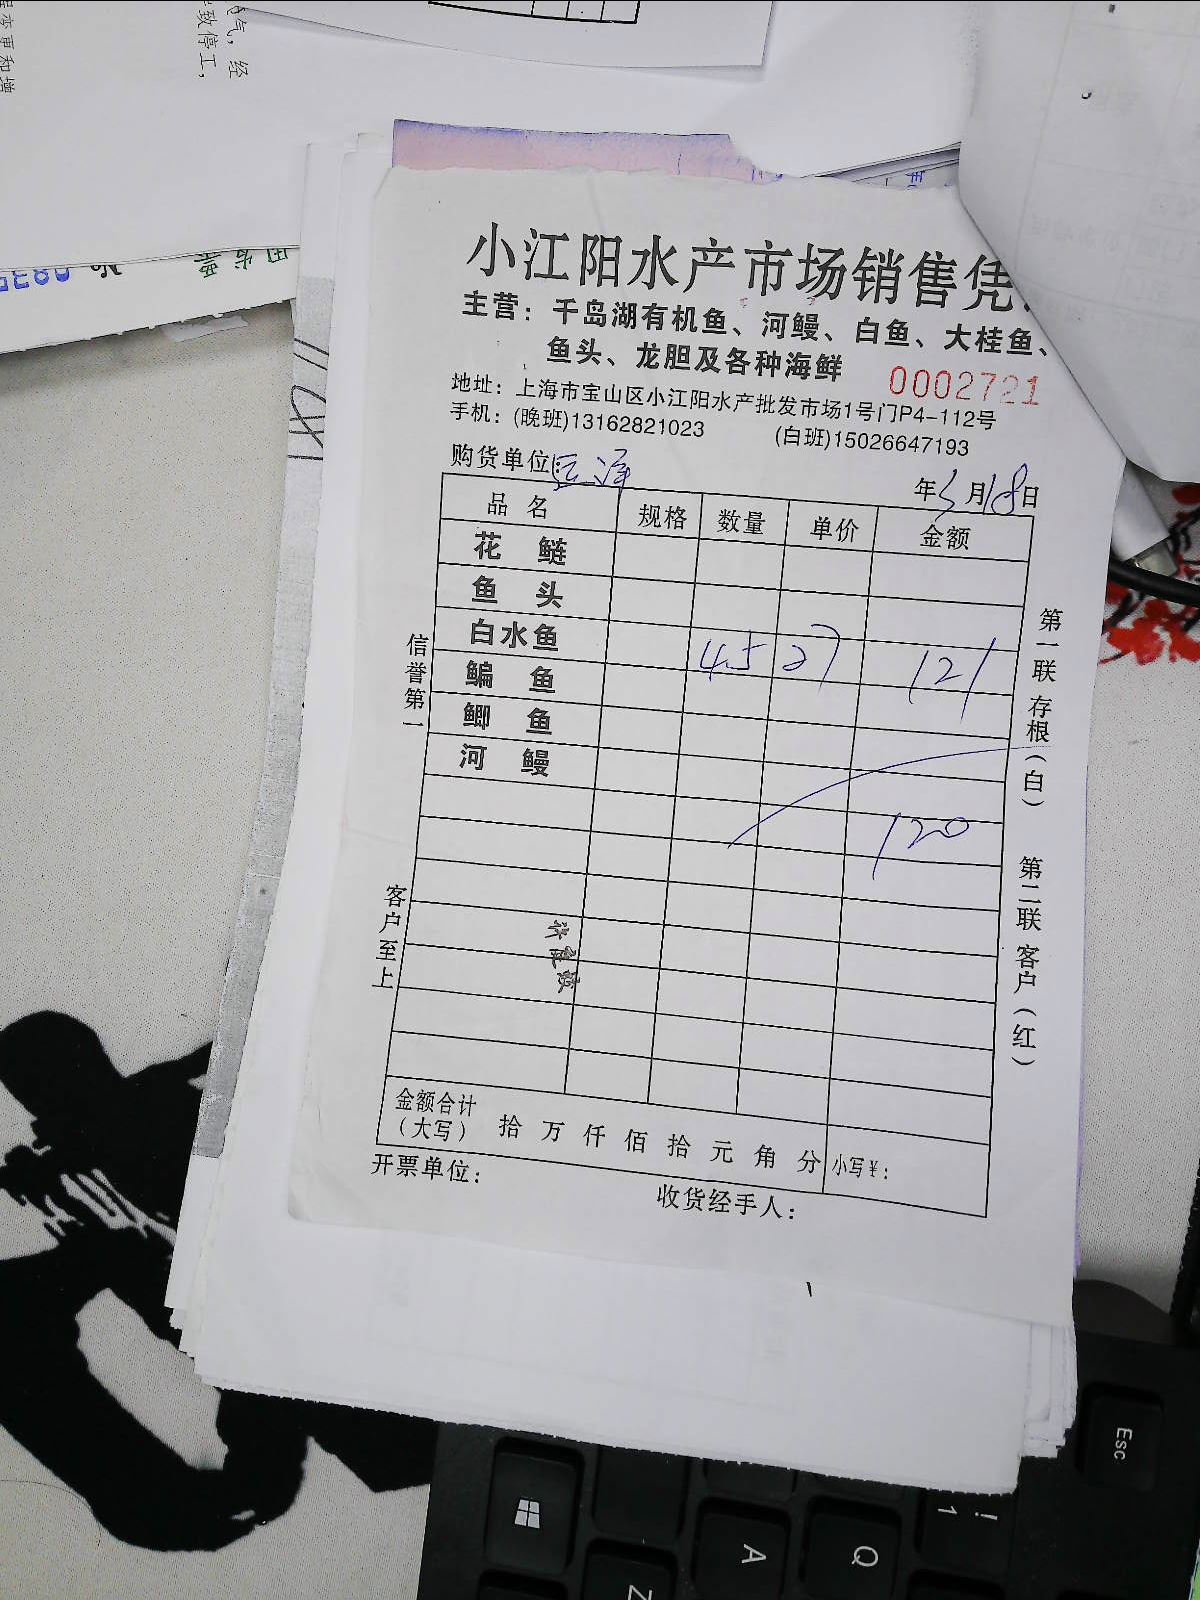 气，经
致停工，
变更和增
小江阳水产市场销售凭
主营：千岛湖有机鱼、河鳗、白鱼、大桂鱼、
鱼头、龙胆及各种海鲜
0002721
地址：上海市宝山区小江阳水产批发市场1号门P4-112号
手机：(晚班)13162821023 (白班)15026647193
购货单位： 年 月18日
品名 规格 数量 单价 金额
花鲢
鱼头
白水鱼 4.5 27 121
鳊鱼
鲫鱼
河鳗
120
金额合计
（大写） 拾 万 仟 佰 拾 元 角 分 小写￥：
开票单位： 收货经手人：
信誉第一
客户至上
第一联 存根（白）
第二联 客户（红）
Esc
! 1
Q
A
Z